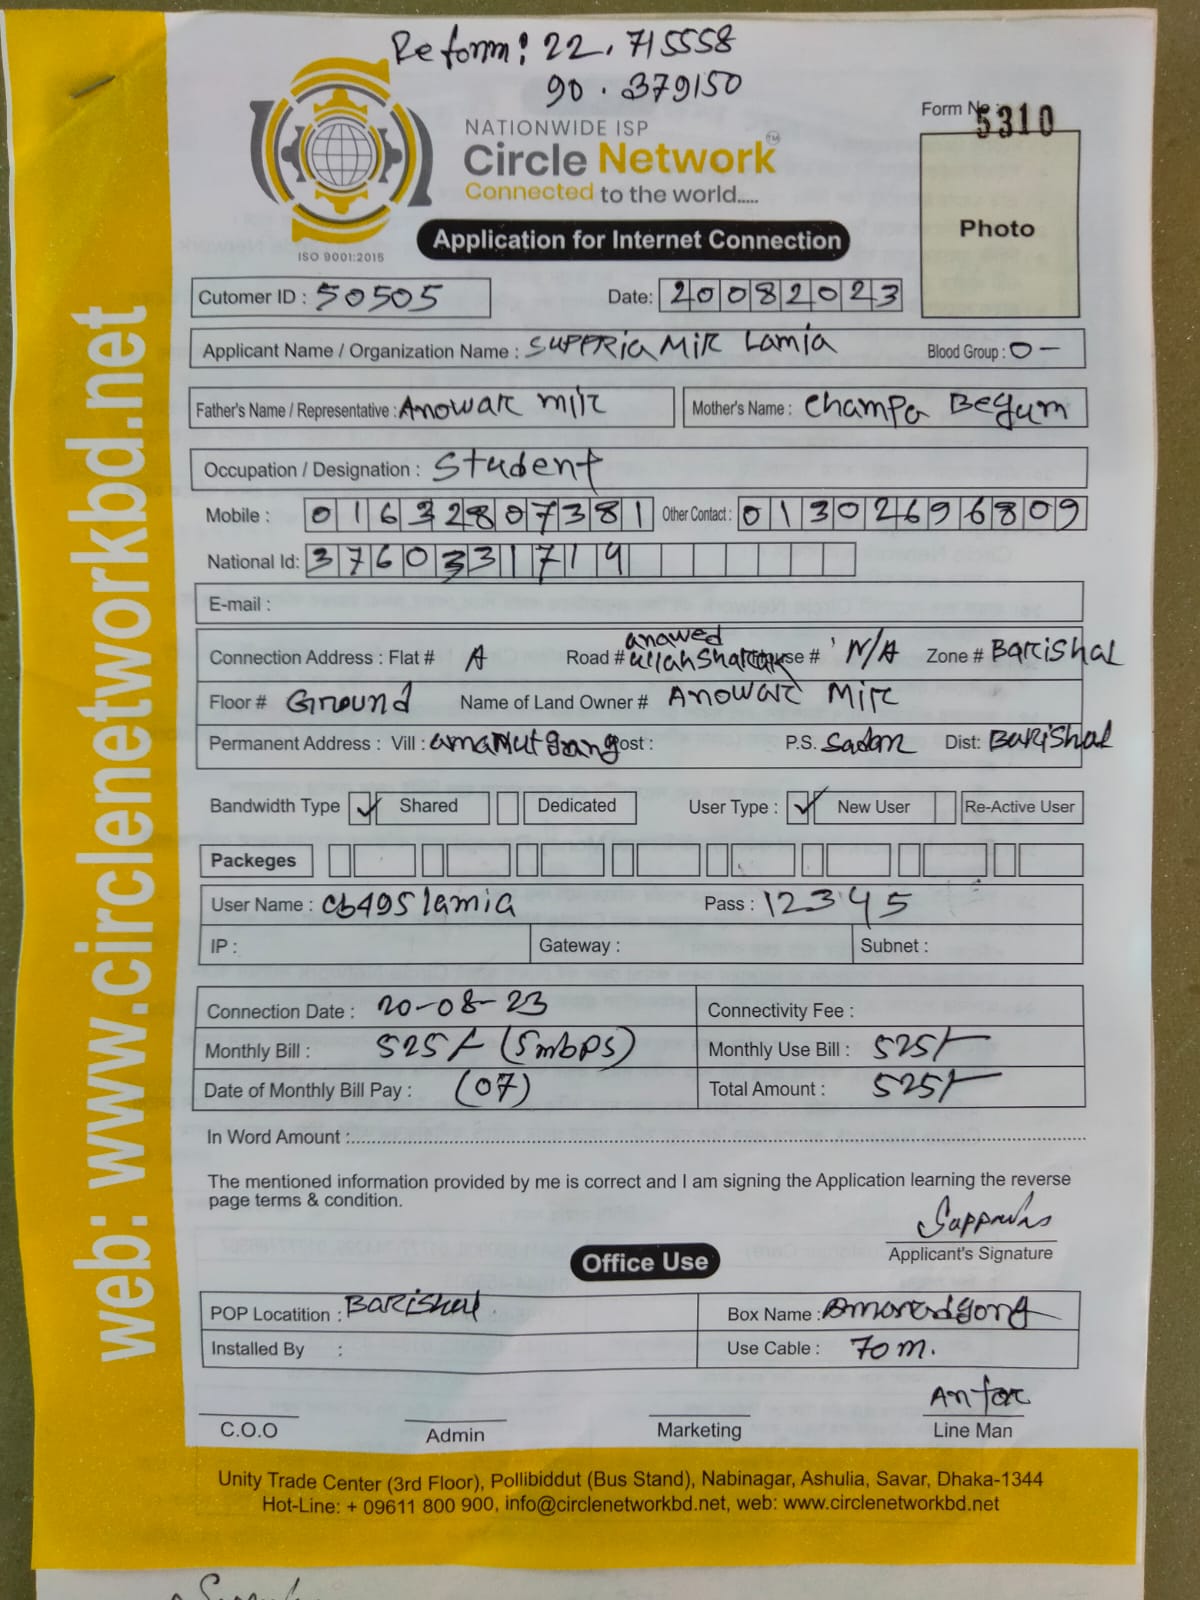 Reform: 22.715558
90.379150
NATIONWIDE ISP
Circle Network TM
Connected to the world.....
ISO 9001:2015
Form No: 5310
Photo
Application for Internet Connection
Cutomer ID : 50505 Date: 20082023
Applicant Name / Organization Name : SUPPRIA MIR Lamia Blood Group : O-
Father's Name / Representative : Anowar mir Mother's Name : Champa Begum
Occupation / Designation : Student
Mobile : 01632807381 Other Contact : 01302696809
National Id: 3760331719
E-mail :
anowed
Connection Address : Flat # A Road # ullah Sharak House # N/A Zone # Barishal
Floor # Ground Name of Land Owner # Anowar Mir
Permanent Address : Vill : Post : P.S. Sador Dist: Barishal
Bandwidth Type ✓ Shared Dedicated User Type : ✓ New User Re-Active User
Packeges
User Name : cb495lamia Pass : 12345
IP : Gateway : Subnet :
Connection Date : 20-08-23 Connectivity Fee :
Monthly Bill : 525/- (5mbps) Monthly Use Bill : 525/-
Date of Monthly Bill Pay : (07) Total Amount : 525/-
In Word Amount :
The mentioned information provided by me is correct and I am signing the Application learning the reverse
page terms & condition.
Applicant's Signature
Office Use
POP Locatition : Barishal Box Name :
Installed By : Use Cable : 70 m.
Antor
C.O.O Admin Marketing Line Man
Unity Trade Center (3rd Floor), Pollibiddut (Bus Stand), Nabinagar, Ashulia, Savar, Dhaka-1344
Hot-Line: + 09611 800 900, info@circlenetworkbd.net, web: www.circlenetworkbd.net
web: www.circlenetworkbd.net